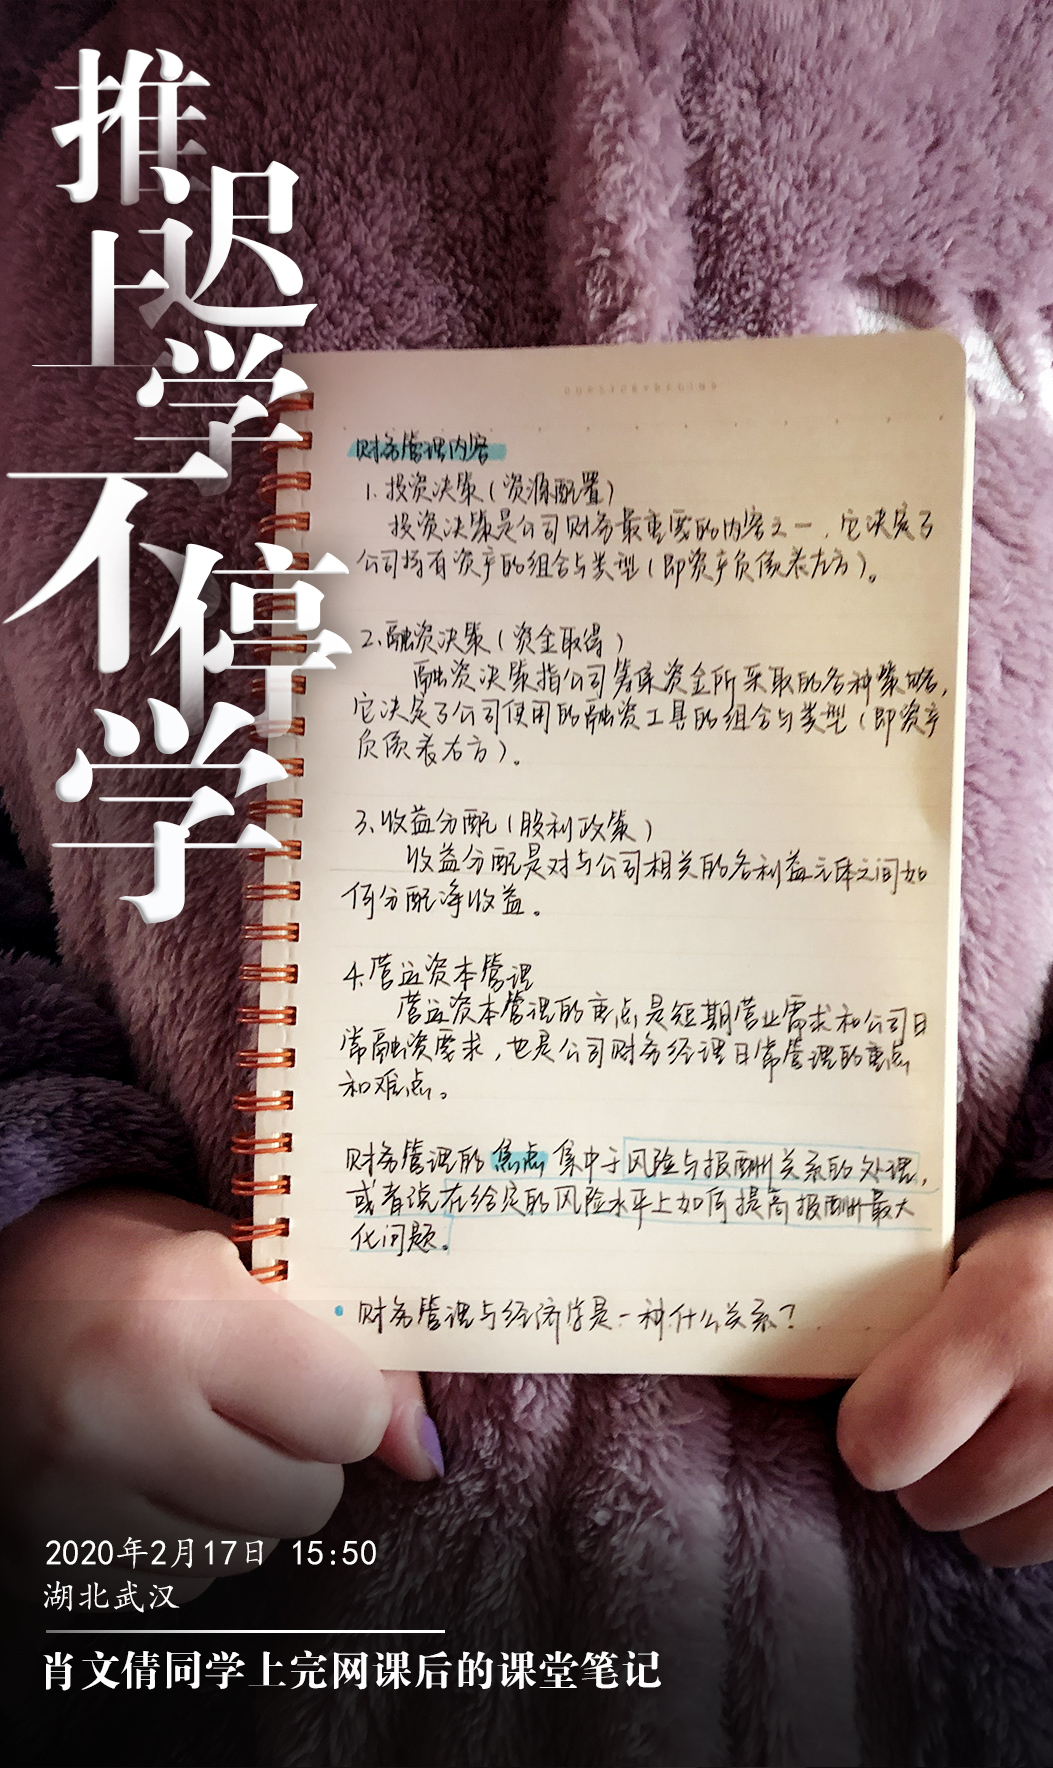 推迟上学不停学
财务管理内容
1. 投资决策(资源配置)
投资决策是公司财务最重要的内容之一,它决定了
公司持有资产的组合与类型(即资产负债表左方)。
2、融资决策(资金取得)
融资决策指公司筹集资金所采取的各种策略,
它决定了公司使用的融资工具的组合与类型(即资产
负债表右方)。
3、收益分配(股利政策)
收益分配是对与公司相关的各利益主体之间如
何分配净收益。
4、营运资本管理
营运资本管理的重点是短期营业需求和公司日
常融资要求,也是公司财务经理日常管理的重点
和难点。
财务管理的焦点集中于风险与报酬关系的处理,
或者说在给定的风险水平上如何提高报酬最大
化问题。
财务管理与经济学是一种什么关系?
2020年2月17日 15:50
湖北武汉
肖文倩同学上完网课后的课堂笔记